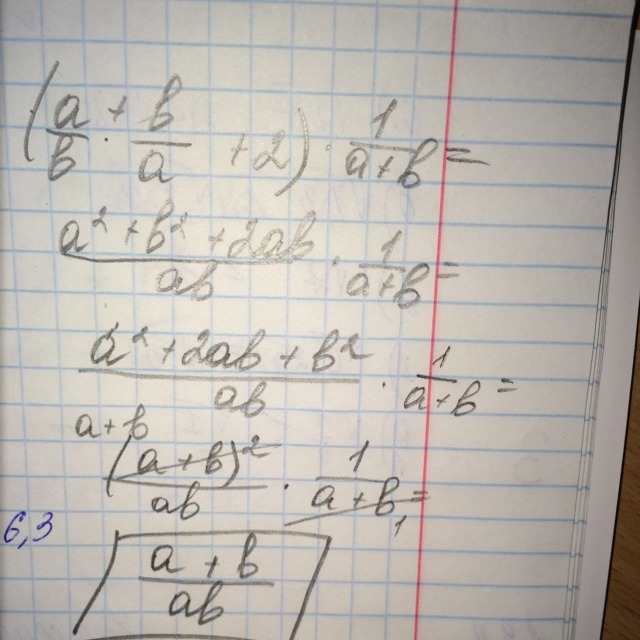 (a/b + b/a + 2) · 1/(a+b) =
(a² + b² + 2ab)/(ab) · 1/(a+b) =
(a² + 2ab + b²)/(ab) · 1/(a+b) =
a+b
(a+b)²/(ab) · 1/(a+b) =
1
6,3
(a + b)/(ab)